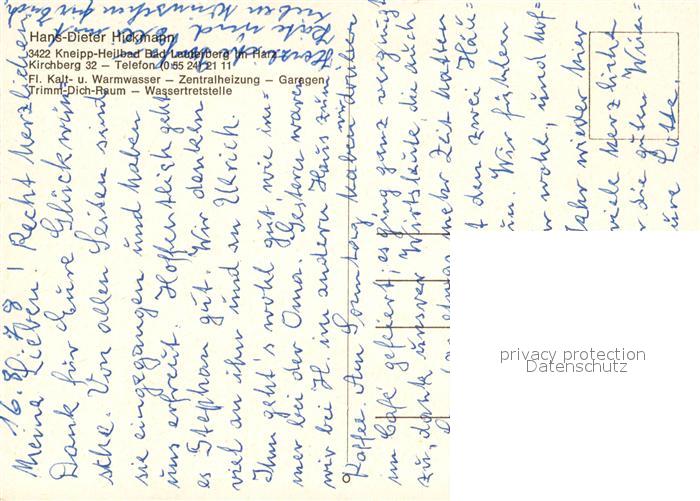 Hans-Dieter Hickmann
3422 Kneipp-Heilbad Bad Lauterberg im Harz
Kirchberg 32 — Telefon (0 55 24) 21 11
Fl. Kalt- u. Warmwasser — Zentralheizung — Garagen
Trimm-Dich-Raum — Wassertretstelle
16.8.78
Meine Lieben! Recht herzlichen
Dank für Eure Glückwün
sche. Von allen Seiten sind
sie eingegangen und haben
uns erfreut. Hoffentlich geht
es Stephan gut. Wir denken
viel an ihn und an Ulrich.
Ihm geht's wohl gut, wie im-
mer bei der Oma. Gestern waren
wir bei H. im anderen Haus zum
Kaffee. Am Sonntag haben wir drüben
im Café gefeiert; es ging ganz vergnügt
zu, dank unser Wirtsleute die auch
mehr Zeit hatten
den zwei Häu-
Wir fühlen
wohl, und hof-
Jahr wieder hier
viele herzliche
die guten Wün-
Eure
Lotte.
privacy protection
Datenschutz